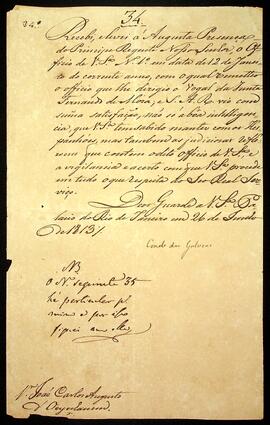 34
34º
Recebi, e levei à Augusta Presença
do Principe Regente Nosso Senhor, o Of-
ficio de V. Sª Nº 1º em data de 12 de Janei-
ro do corrente anno, com o qual remetteo
o officio que lhe dirigio o Vogal da Junta
Fernando de Mora, e S. A. R. vio com
summa satisfação, não só a boa intelligen-
cia, que V. Sª tem sabido manter com os Hes-
panhoes, mas tambem as judiciosas refle-
xoens que contem o dito Officio de V. Sª, e
a vigilancia e acerto com que V. Sª procede
em tudo o que respeita ao Seo Real Ser-
viço.
Deos Guarde a V. Sª Pa-
lacio do Rio de Janeiro em 26 de Junho
de 1813
Conde das Galveas
NB
O N. seguinte 35
he particular
Sr. João Carlos Augusto
d'Oeynhausen